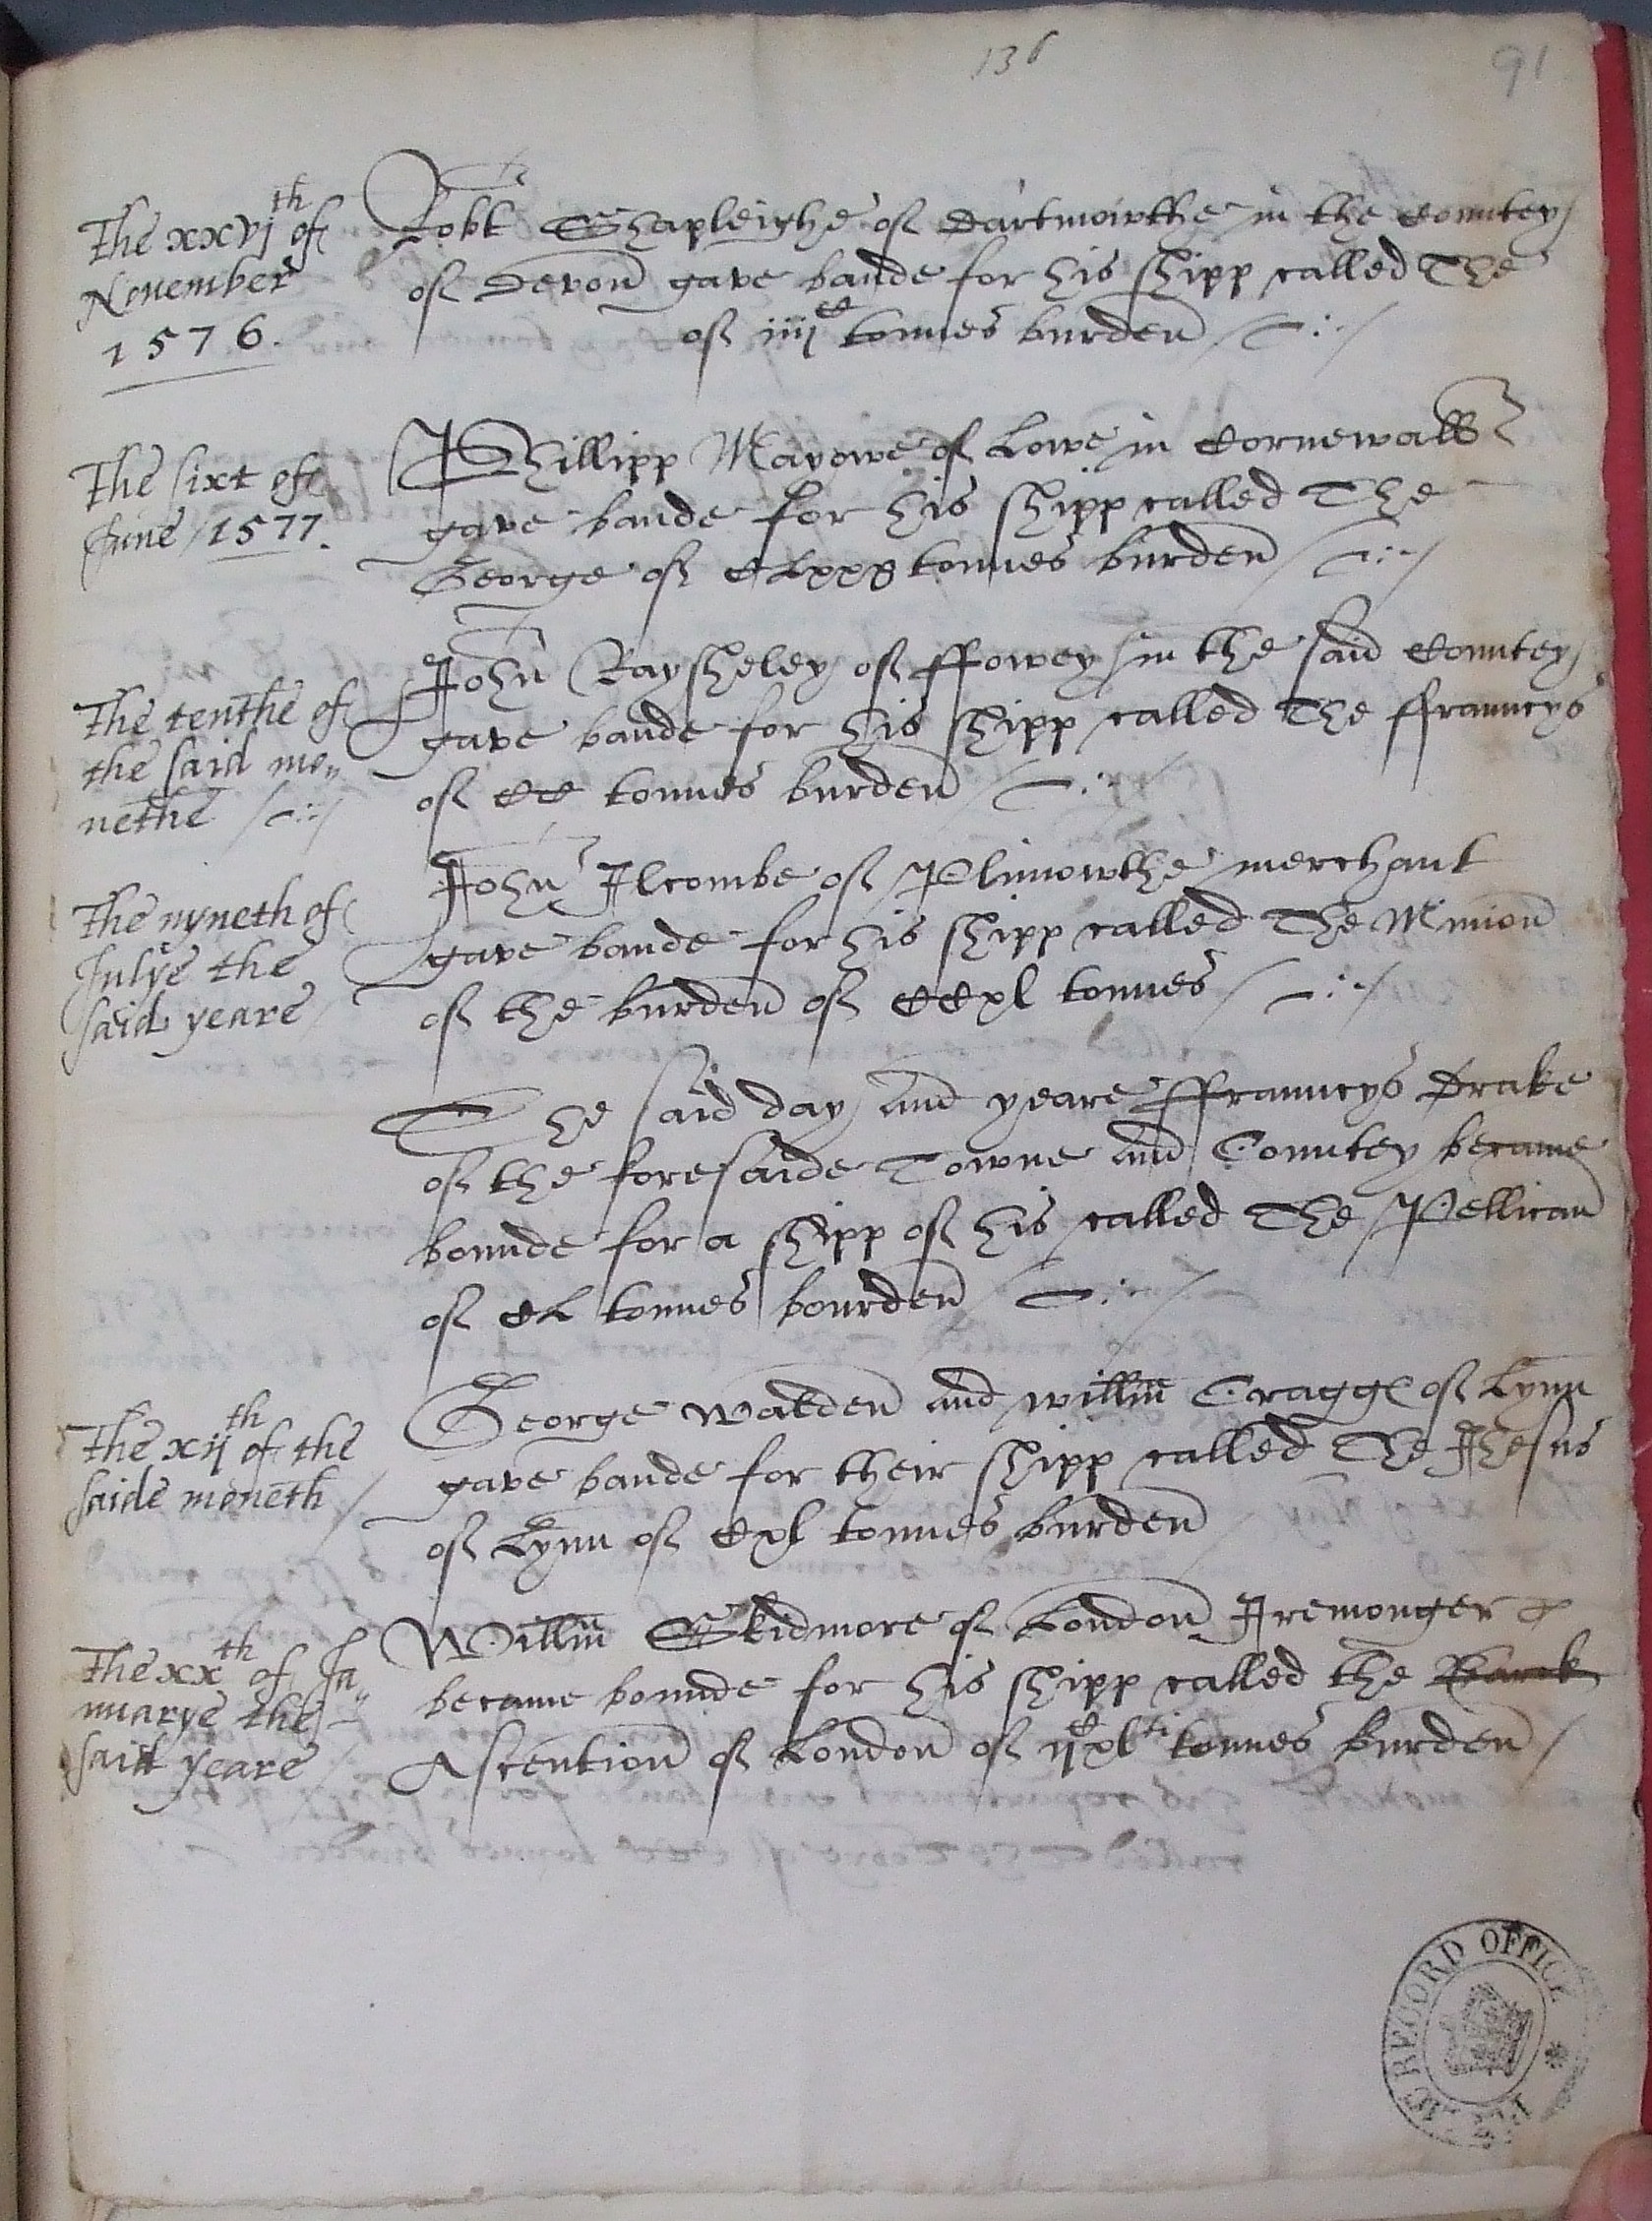 136
91
The xxvjth of
November
1576.
Robt Shapleighe of Dartmowthe in the Countey
of Devon gave bande for his shipp called The
of iiijcc tonnes burden
The sixt of
June 1577.
Phillipp Mayowe of Lowe in Cornewall
gave bande for his shipp called The
George of CLxxx tonnes burden
The tenthe of
the said mo„
nethe
John Raysheley of ffowey in the said Countey
gave bande for his shipp called The ffrauncys
of CC tonnes burden
The nyneth of
Julye the
said yeare
John Ilcombe of Plimowthe merchant
gave bande for his shipp called The Minion
of the burden of CCxl tonnes
The said day and yeare ffrauncys Drake
of the foresaide Towne and Countey became
bounde for a shipp of his called The Pellican
of CL tonnes bourden
The xijth of the
saide moneth
George Walden and Willm Cragge of Lynn
gave bande for their shipp called The Jhesus
of Lynn of Cxl tonnes burden
The xxth of Ja„
nuarye the
said yeare
Willm Skidmore of London Iremonger
became bounde for his shipp called the Barck
Ascention of London of ijcxlti tonnes burden
RECORD OFFICE